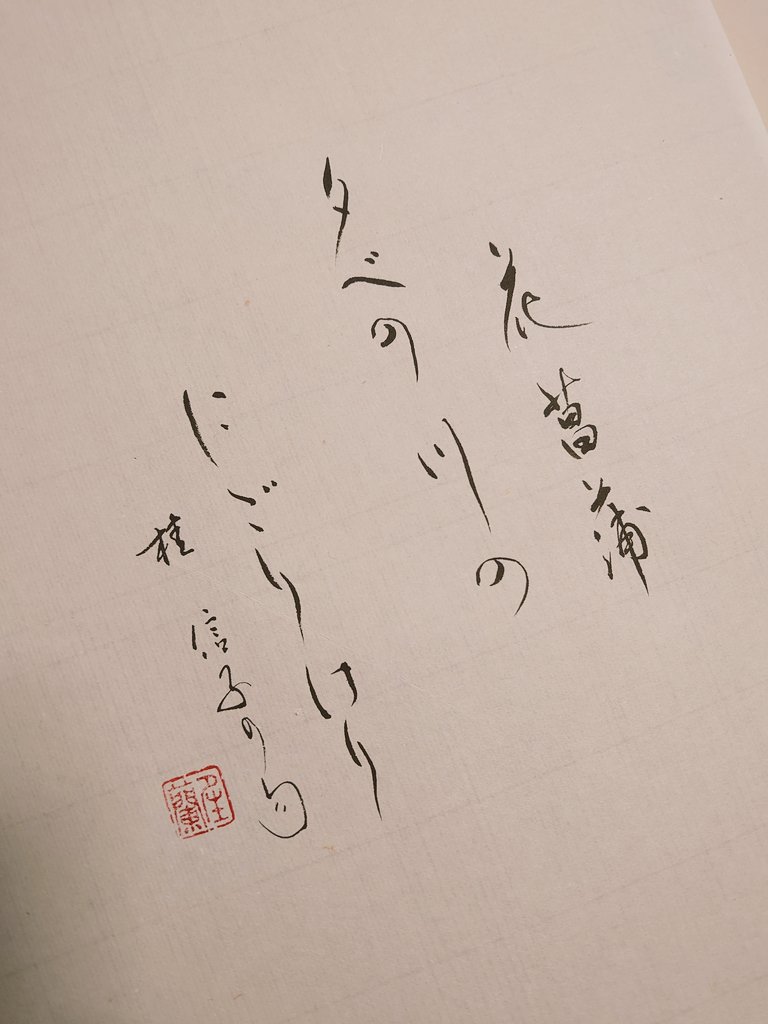 花菖蒲
夕べの川の
にごりけり
桂信子の句